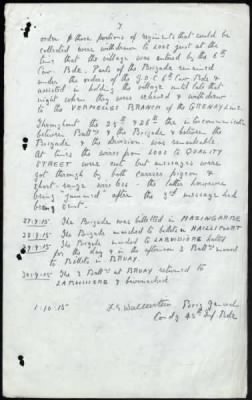 7
order & those portions of regiments that could be
collected were withdrawn to Loos just at the
time that the village was entered by the 6th
Cav. Bde. Parts of the Brigade remained
under the orders of the G.O.C 6th Cav. Bde &
assisted in holding the village until late that
night when they were relieved & withdrawn
to the VERMELLES BRANCH of the GRENAY LINE.
Throughout the 25th & 26th the intercommunication
between Batt'ns & the Brigade & between the
Brigade & the division was remarkable.
At times the wires from LOOS to QUALITY
STREET were cut but messages were
got through by both carrier pigeon &
short-range wireless - the latter however
being "jammed" after the 3rd message had
being sent.
27.9.15. The Brigade was billetted in MAZINGARBE
28.9.15 The Brigade marched to billets in HAILLICOURT
29.9.15 The Brigade marched to LABUISSIERE halted
for the day & in the afternoon 2 Batt'ns moved
to Billets in BRUAY.
30.9.15 The 2 Batt'ns at BRUAY returned to
LABUISSIERE & bivouacked
1.10.15 Brig. Genl
Comdg 45th Inf. Bde